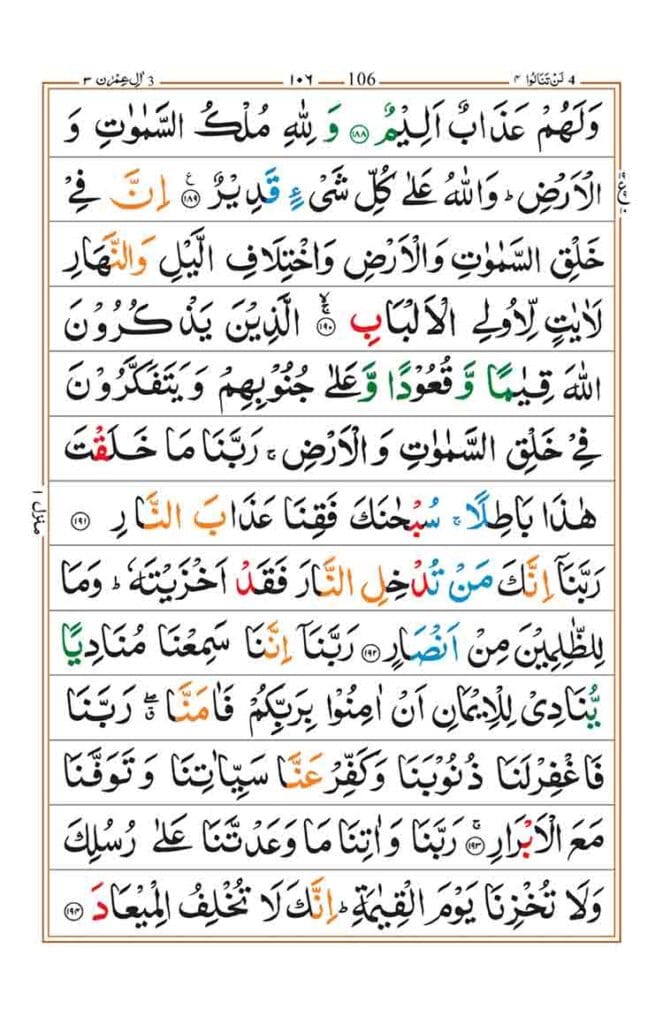 4 لَنْ تَنَالُوا ۴ 106 ۱۰۶ 3 اٰلِ عِمْرٰن ۳
وَلَهُمْ عَذَابٌ اَلِيْمٌ ﴿۱۸۸﴾ وَ لِلّٰهِ مُلْكُ السَّمٰوٰتِ وَ
الْاَرْضِ ؕ وَاللّٰهُ عَلٰى كُلِّ شَىْءٍ قَدِيْرٌ ﴿۱۸۹﴾ ع اِنَّ فِىْ
خَلْقِ السَّمٰوٰتِ وَالْاَرْضِ وَاخْتِلَافِ الَّيْلِ وَالنَّهَارِ
لَاٰيٰتٍ لِّاُولِى الْاَلْبَابِ ﴿۱۹۰﴾ۚۙ الَّذِيْنَ يَذْكُرُوْنَ
اللّٰهَ قِيٰمًا وَّ قُعُوْدًا وَّعَلٰى جُنُوْبِهِمْ وَيَتَفَكَّرُوْنَ
فِىْ خَلْقِ السَّمٰوٰتِ وَالْاَرْضِ ۚ رَبَّنَا مَا خَلَقْتَ
هٰذَا بَاطِلًا ۚ سُبْحٰنَكَ فَقِنَا عَذَابَ النَّارِ ﴿۱۹۱﴾
رَبَّنَاۤ اِنَّكَ مَنْ تُدْخِلِ النَّارَ فَقَدْ اَخْزَيْتَهٗ ؕ وَمَا
لِلظّٰلِمِيْنَ مِنْ اَنْصَارٍ ﴿۱۹۲﴾ رَبَّنَاۤ اِنَّنَا سَمِعْنَا مُنَادِيًا
يُّنَادِىْ لِلْاِيْمَانِ اَنْ اٰمِنُوْا بِرَبِّكُمْ فَاٰمَنَّا ۖۗ رَبَّنَا
فَاغْفِرْلَنَا ذُنُوْبَنَا وَكَفِّرْ عَنَّا سَيِّاٰتِنَا وَتَوَفَّنَا
مَعَ الْاَبْرَارِ ﴿۱۹۳﴾ۚ رَبَّنَا وَاٰتِنَا مَا وَعَدْتَّنَا عَلٰى رُسُلِكَ
وَلَا تُخْزِنَا يَوْمَ الْقِيٰمَةِ ؕ اِنَّكَ لَا تُخْلِفُ الْمِيْعَادَ ﴿۱۹۴﴾
منزل ۱